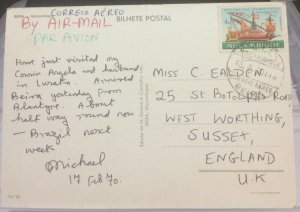 CORREIO AÉREO
BY AIR-MAIL
PAR AVION
BILHETE POSTAL
Have just visited my
Cousin Angela and husband
in Lusaka. Arrived
Beira yesterday from
Blantyre. About
half way round now
– Brazil next
week.
Michael
17 Feb 70.
MOÇAMBIQUE
MISS C. EALDEN
25 ST. BOTOLPHS ROAD
WEST WORTHING,
SUSSEX,
ENGLAND
U.K